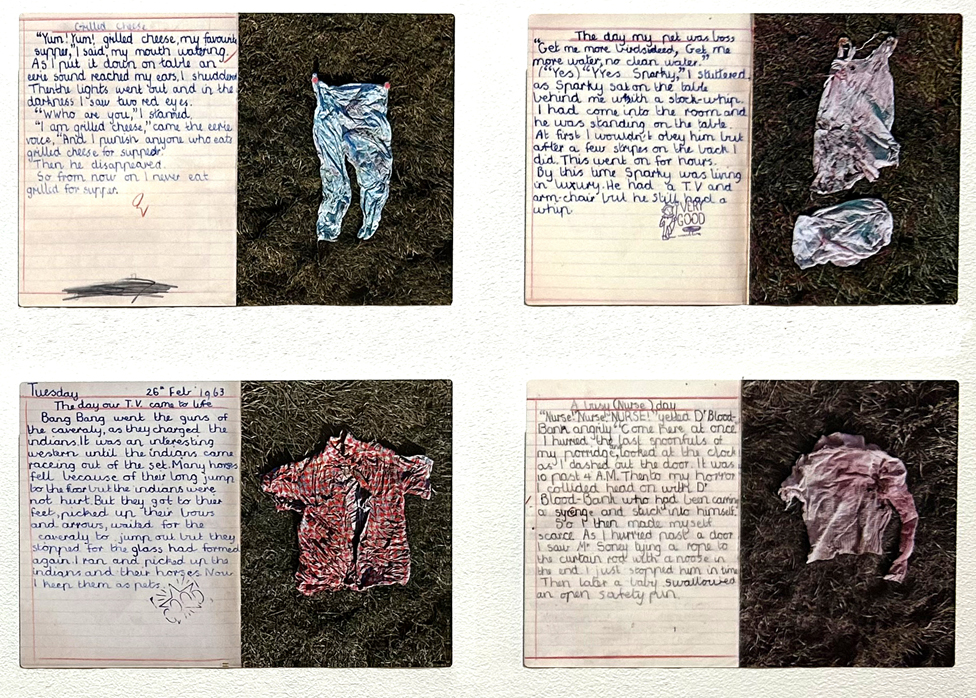 Grilled Cheese
"Yum! Yum! grilled cheese, my favourite
supper," I said, my mouth watering.
As I put it down on table an
eerie sound reached my ears, I shuddered
Then the lights went out and in the
darkness I saw two red eyes.
"WWho are you," I stamed.
"I am grilled cheese," came the eerie
voice, "And I punish anyone who eats
grilled cheese for supper"
Then he disappeared.
So from now on I never eat
grilled for supper.
The day my pet was boss
"Get me more birdseed, Get me
more water, no clean water."
"Yes" "Yyes Sparky," I stuttered
as Sparky sat on the table
behind me with a stock-whip.
I had come into the room and
he was standing on the table.
At first I wouldn't obey him but
after a few stripes on the back I
did. This went on for hours.
By this time Sparky was living
in luxury. He had a T.V and
arm-chair but he still had a
whip.
VERY
GOOD
Tuesday 26th Feb 1963
The day our T.V. came to life
Bang Bang went the guns of
the caveraly, as they charged the
indians. It was an interesting
western until the indians came
raceing out of the set. Many horses
fell because of their long jump
to the floor but the indians were
not hurt. But they got to their
feet, picked up their bows
and arrows, waited for the
caveraly to jump out but they
stopped for the glass had formed
again. I ran and picked up the
indians and their horses. Now
I keep them as pets.
A busy (Nurse) day
"Nurse! Nurse! NURSE!" yelled Dr Blood-
Bank angrily "Come here at once
I hurried the last spoonfuls of
my porridge, looked at the clock
as I dashed out the door. It was
10 past 4 A.M. Then to my horror
I collided head on with Dr
Blood-Bank who had been carring
a syringe and stuck into himself.
So I then made myself
scarce. As I hurried past a door
I saw Mr Soney tying a rope to
the curtain rod with a noose in
the end. I just stopped him in time
Then later a baby swallowed
an open safety pin.